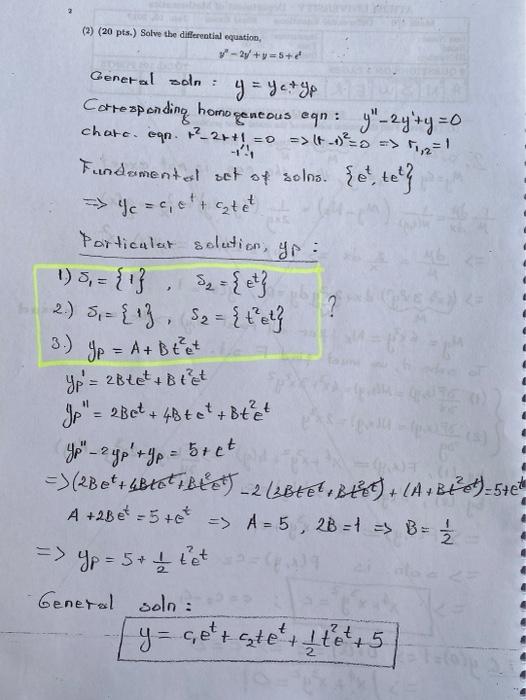 2
(2) (20 pts.) Solve the differential equation,
y'' − 2y' + y = 5 + e^t
General soln : y = yc+yp
Corresponding homogeneous eqn : y''-2y'+y=0
charc. eqn. r²-2r+1=0 => (r-1)²=0 => r₁,₂=1
-1 -1
Fundamental set of solns. {e^t, te^t}
=> yc = c₁e^t + c₂te^t
Particular solution, yp :
1) S₁ = {1} , S₂ = {e^t}
2.) S₁ = {1} , S₂ = {t²e^t} ?
3.) yp = A + Bt²e^t
yp' = 2Bte^t + Bt²e^t
yp'' = 2Be^t + 4Bte^t + Bt²e^t
yp''-2yp'+yp = 5+e^t
=> (2Be^t+4Bte^t+Bt²e^t) -2(2Bte^t+Bt²e^t) + (A+Bt²e^t)=5+e^t
A+2Be^t = 5+e^t => A=5, 2B=1 => B= 1/2
=> yp = 5 + 1/2 t²e^t
General soln :
y = c₁e^t + c₂te^t + 1/2 t²e^t + 5